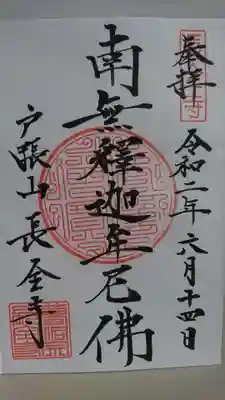 奉拝
令和二年六月十四日
南無釋迦牟尼佛
戸張山長全寺